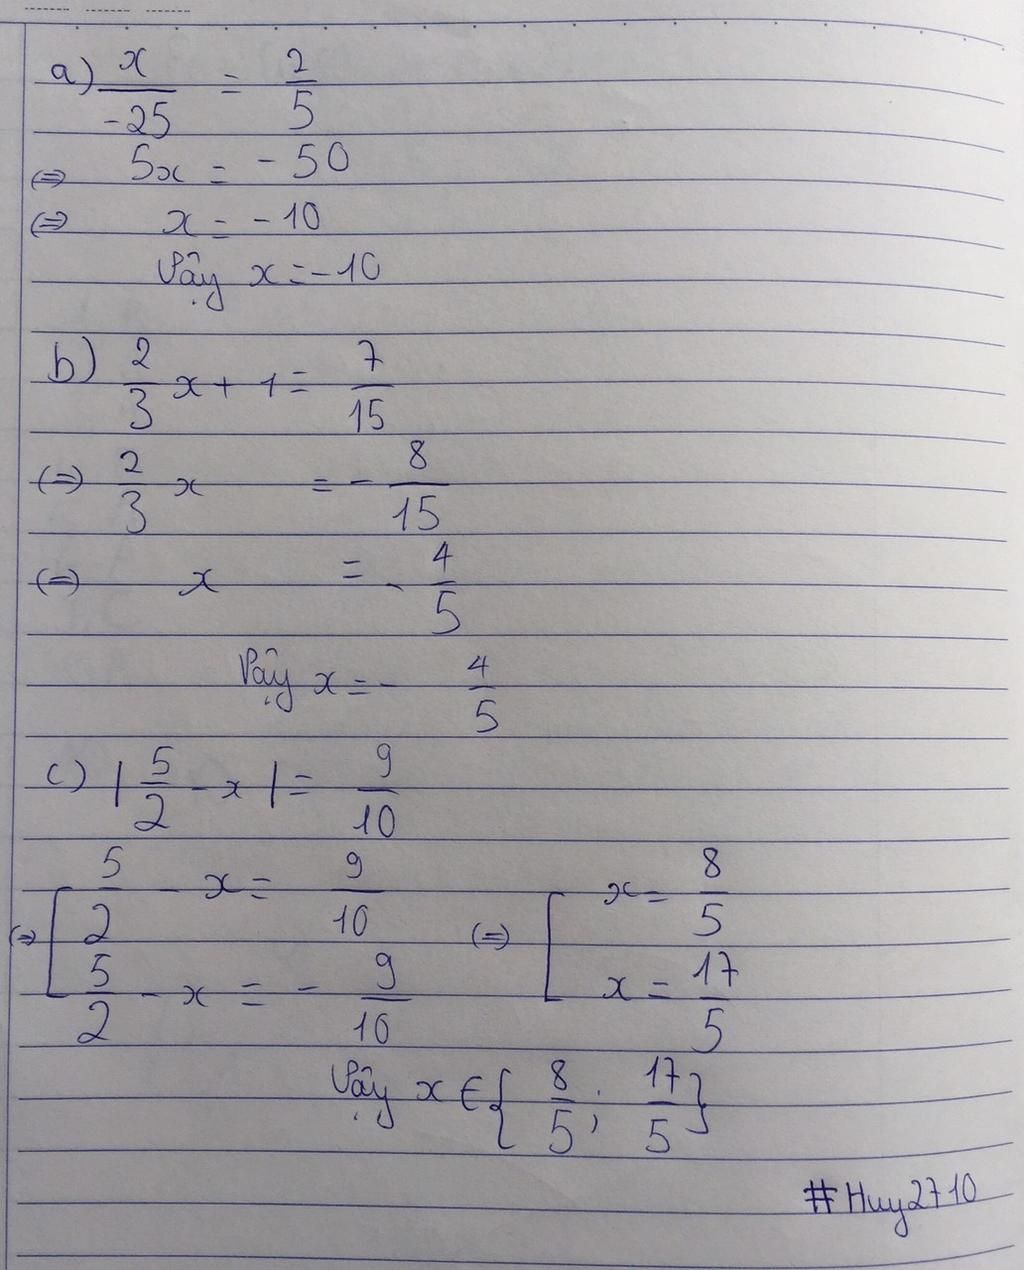 a) x/-25 = 2/5
⇔ 5x = -50
⇔ x = -10
Vậy x = -10
b) 2/3 x + 1 = 7/15
⇔ 2/3 x = - 8/15
⇔ x = - 4/5
Vậy x = - 4/5
c) | 5/2 - x | = 9/10
⇔ [ 5/2 - x = 9/10 ⇔ [ x = 8/5
5/2 - x = - 9/10 x = 17/5
Vậy x ∈ { 8/5 ; 17/5 }
#Huy2710